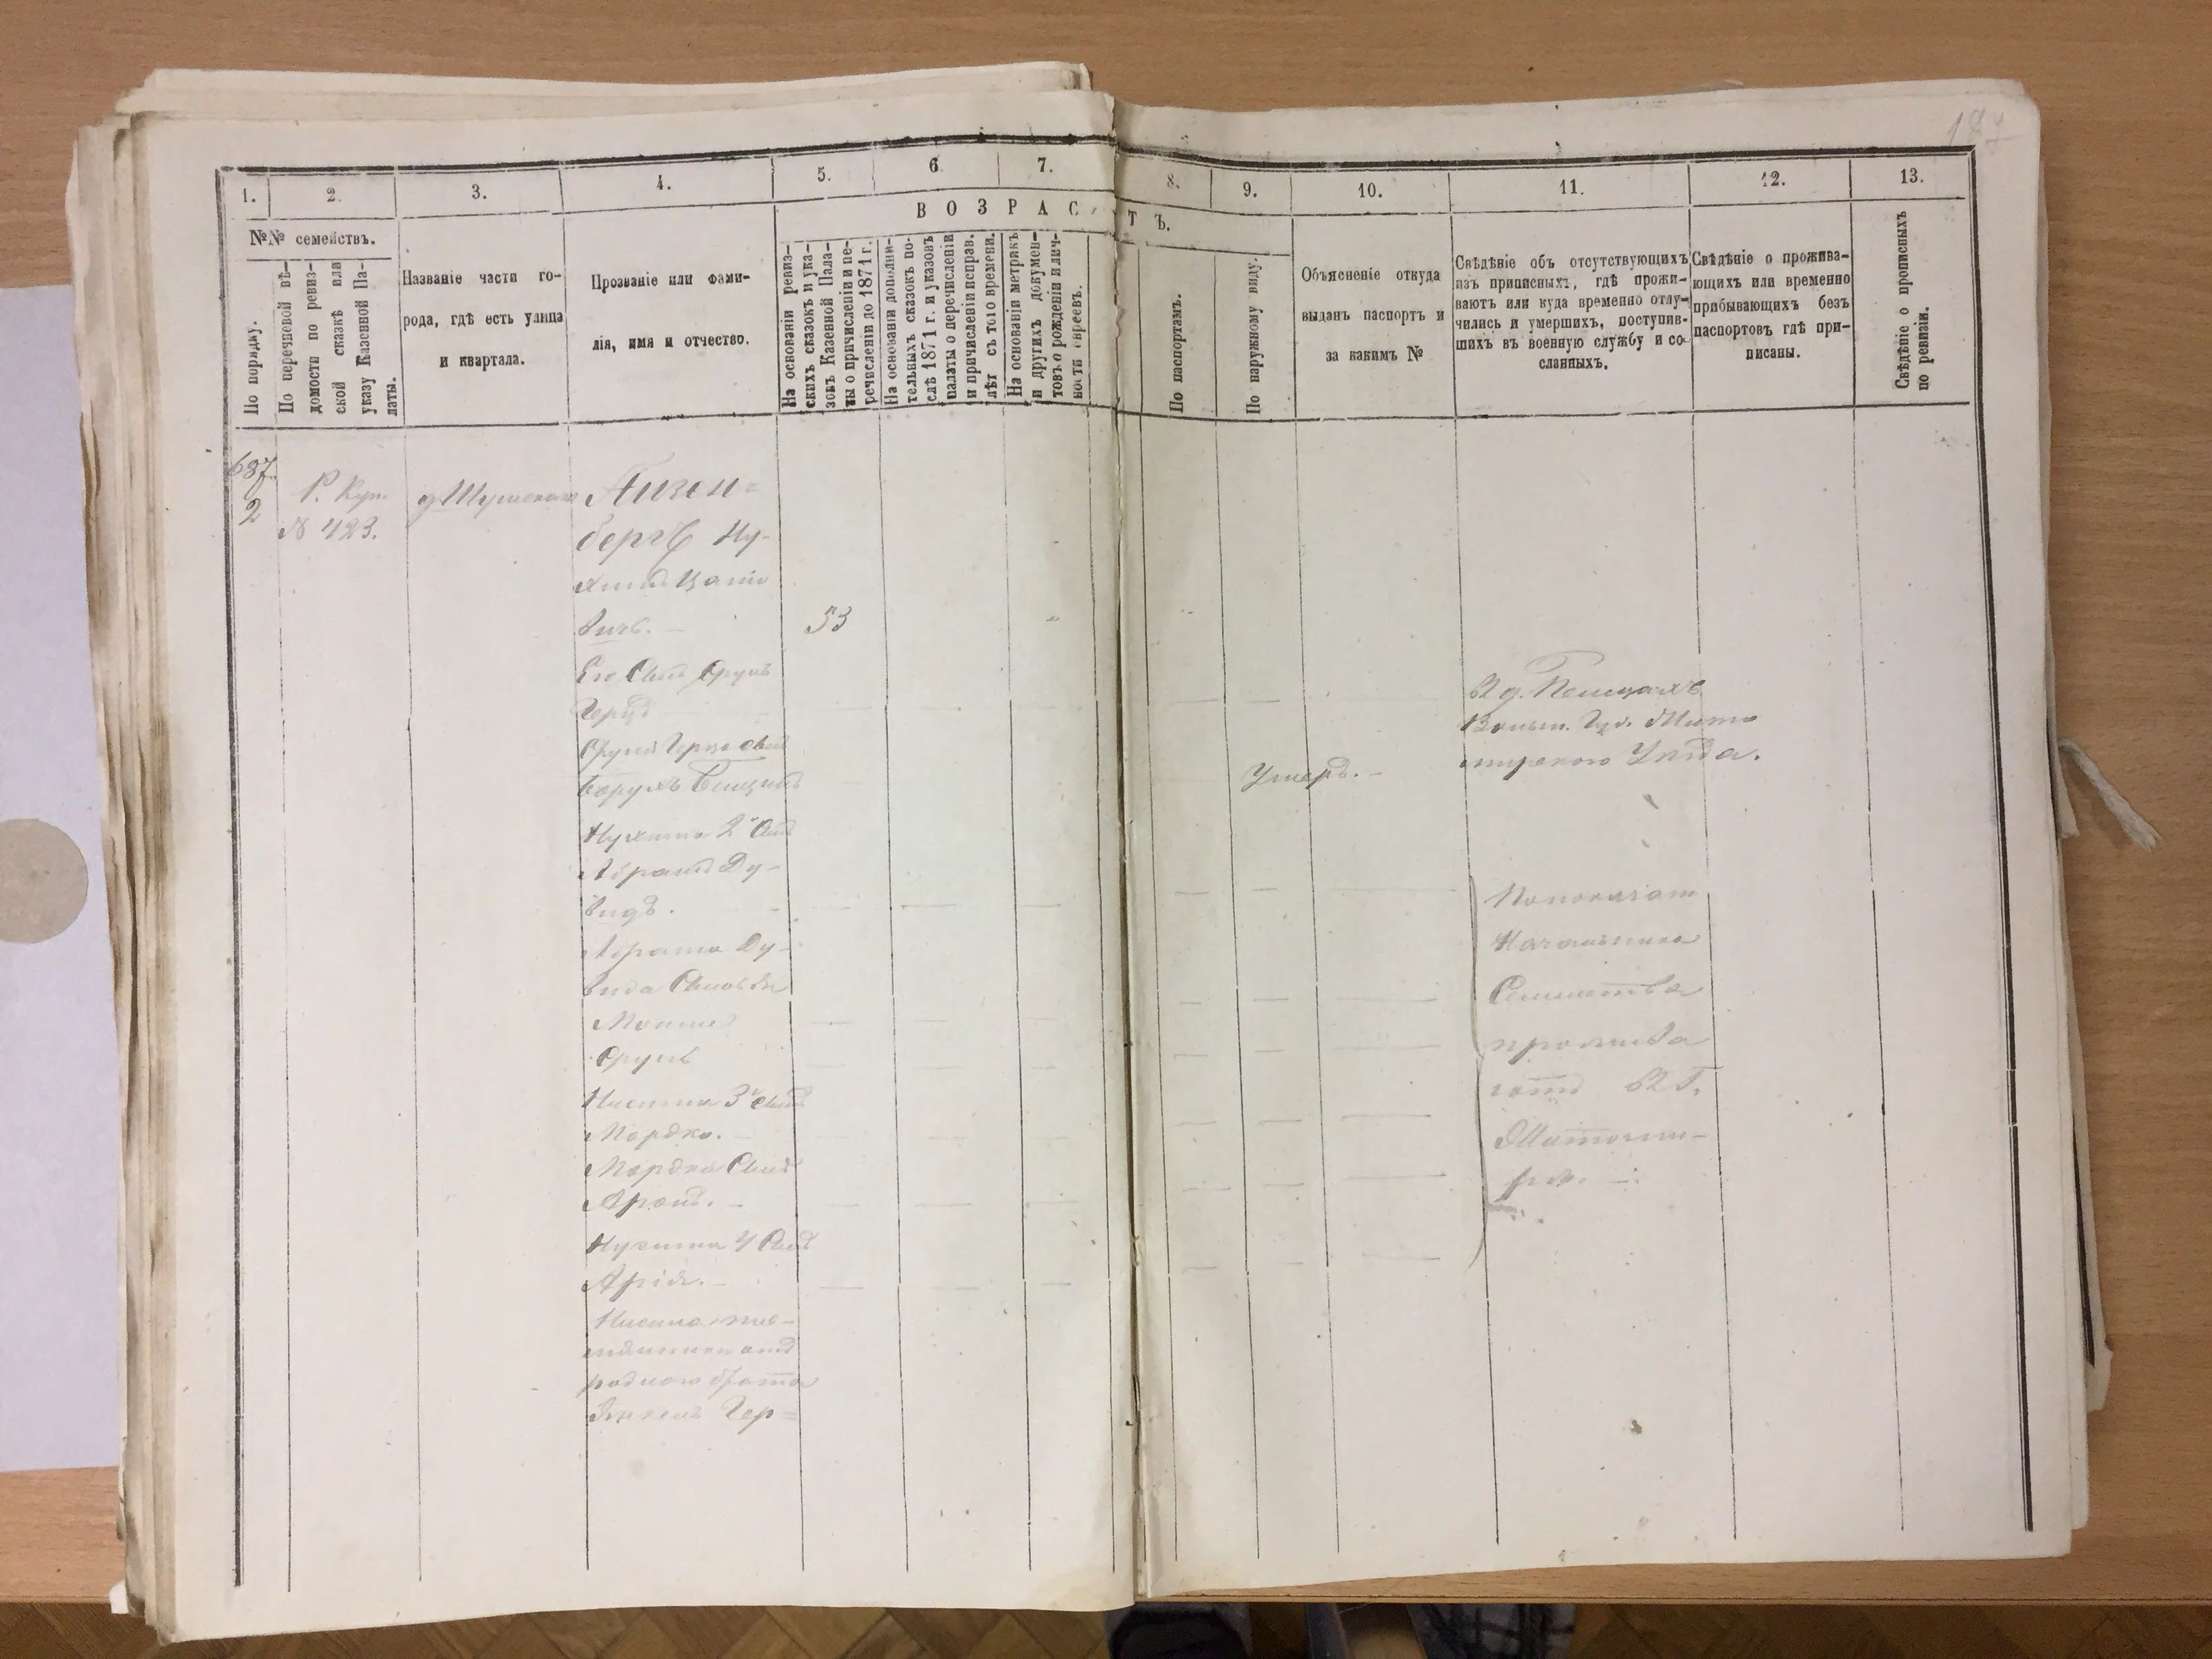 187
1.
2.
3.
4.
5.
6
7.
8.
9.
10.
11.
12.
13.
№№ семействъ.
ВОЗРАСТЪ.
По порядку.
По перечневой вѣ-
домости по ревиз-
ской сказкѣ или
указу Казенной Па-
латы.
Названіе части го-
рода, гдѣ есть улица
и квартала.
Прозваніе или фами-
лія, имя и отчество.
На основаніи ревиз-
скихъ сказокъ и ука-
зовъ Казенной Пала-
ты о причисленіи и пе-
речисленіи до 1871 г.
На основаніи дополни-
тельныхъ сказокъ по-
слѣ 1871 г. и указовъ
палаты о перечисленіи
и причисленіи исправ.
лѣт съ того времени.
На основаніи метрикъ
и другихъ докумен-
товъ о рожденіи и лич-
ности евреевъ.
По паспортамъ.
По наружному виду.
Объясненіе откуда
выданъ паспортъ и
за какимъ №
Свѣдѣніе объ отсутствующихъ
изъ приписныхъ, гдѣ прожи-
ваютъ или куда временно отлу-
чились и умершихъ, поступив-
шихъ въ военную службу и со-
сланныхъ.
Свѣдѣніе о прожива-
ющихъ или временно
прибывающихъ безъ
паспортовъ гдѣ при-
писаны.
Свѣдѣніе о прописныхъ
по ревизіи.
687
2
Р. Куп.
№ 423.
Айзен=
бергъ Ну-
вичъ. 53
Его Сынъ Срулъ
Герцъ
Срулъ Герца Сынъ
Борухъ Умеръ.
Въ д.
Волын. Губ. Жито
мирскаго Уѣзда.
2й Сынъ
Абрамъ Ду-
видъ.
Абрама Ду-
вида Сыновья
Срулъ
3й Сынъ
Мордко.
Мордка Сынъ
Аронъ.
4 Сынъ
Арія.
Нисина пле-
мянники отъ
родного брата
Гер=
Начальника
Семейства
прожива
ютъ въ Г.
Житоми-
рѣ.